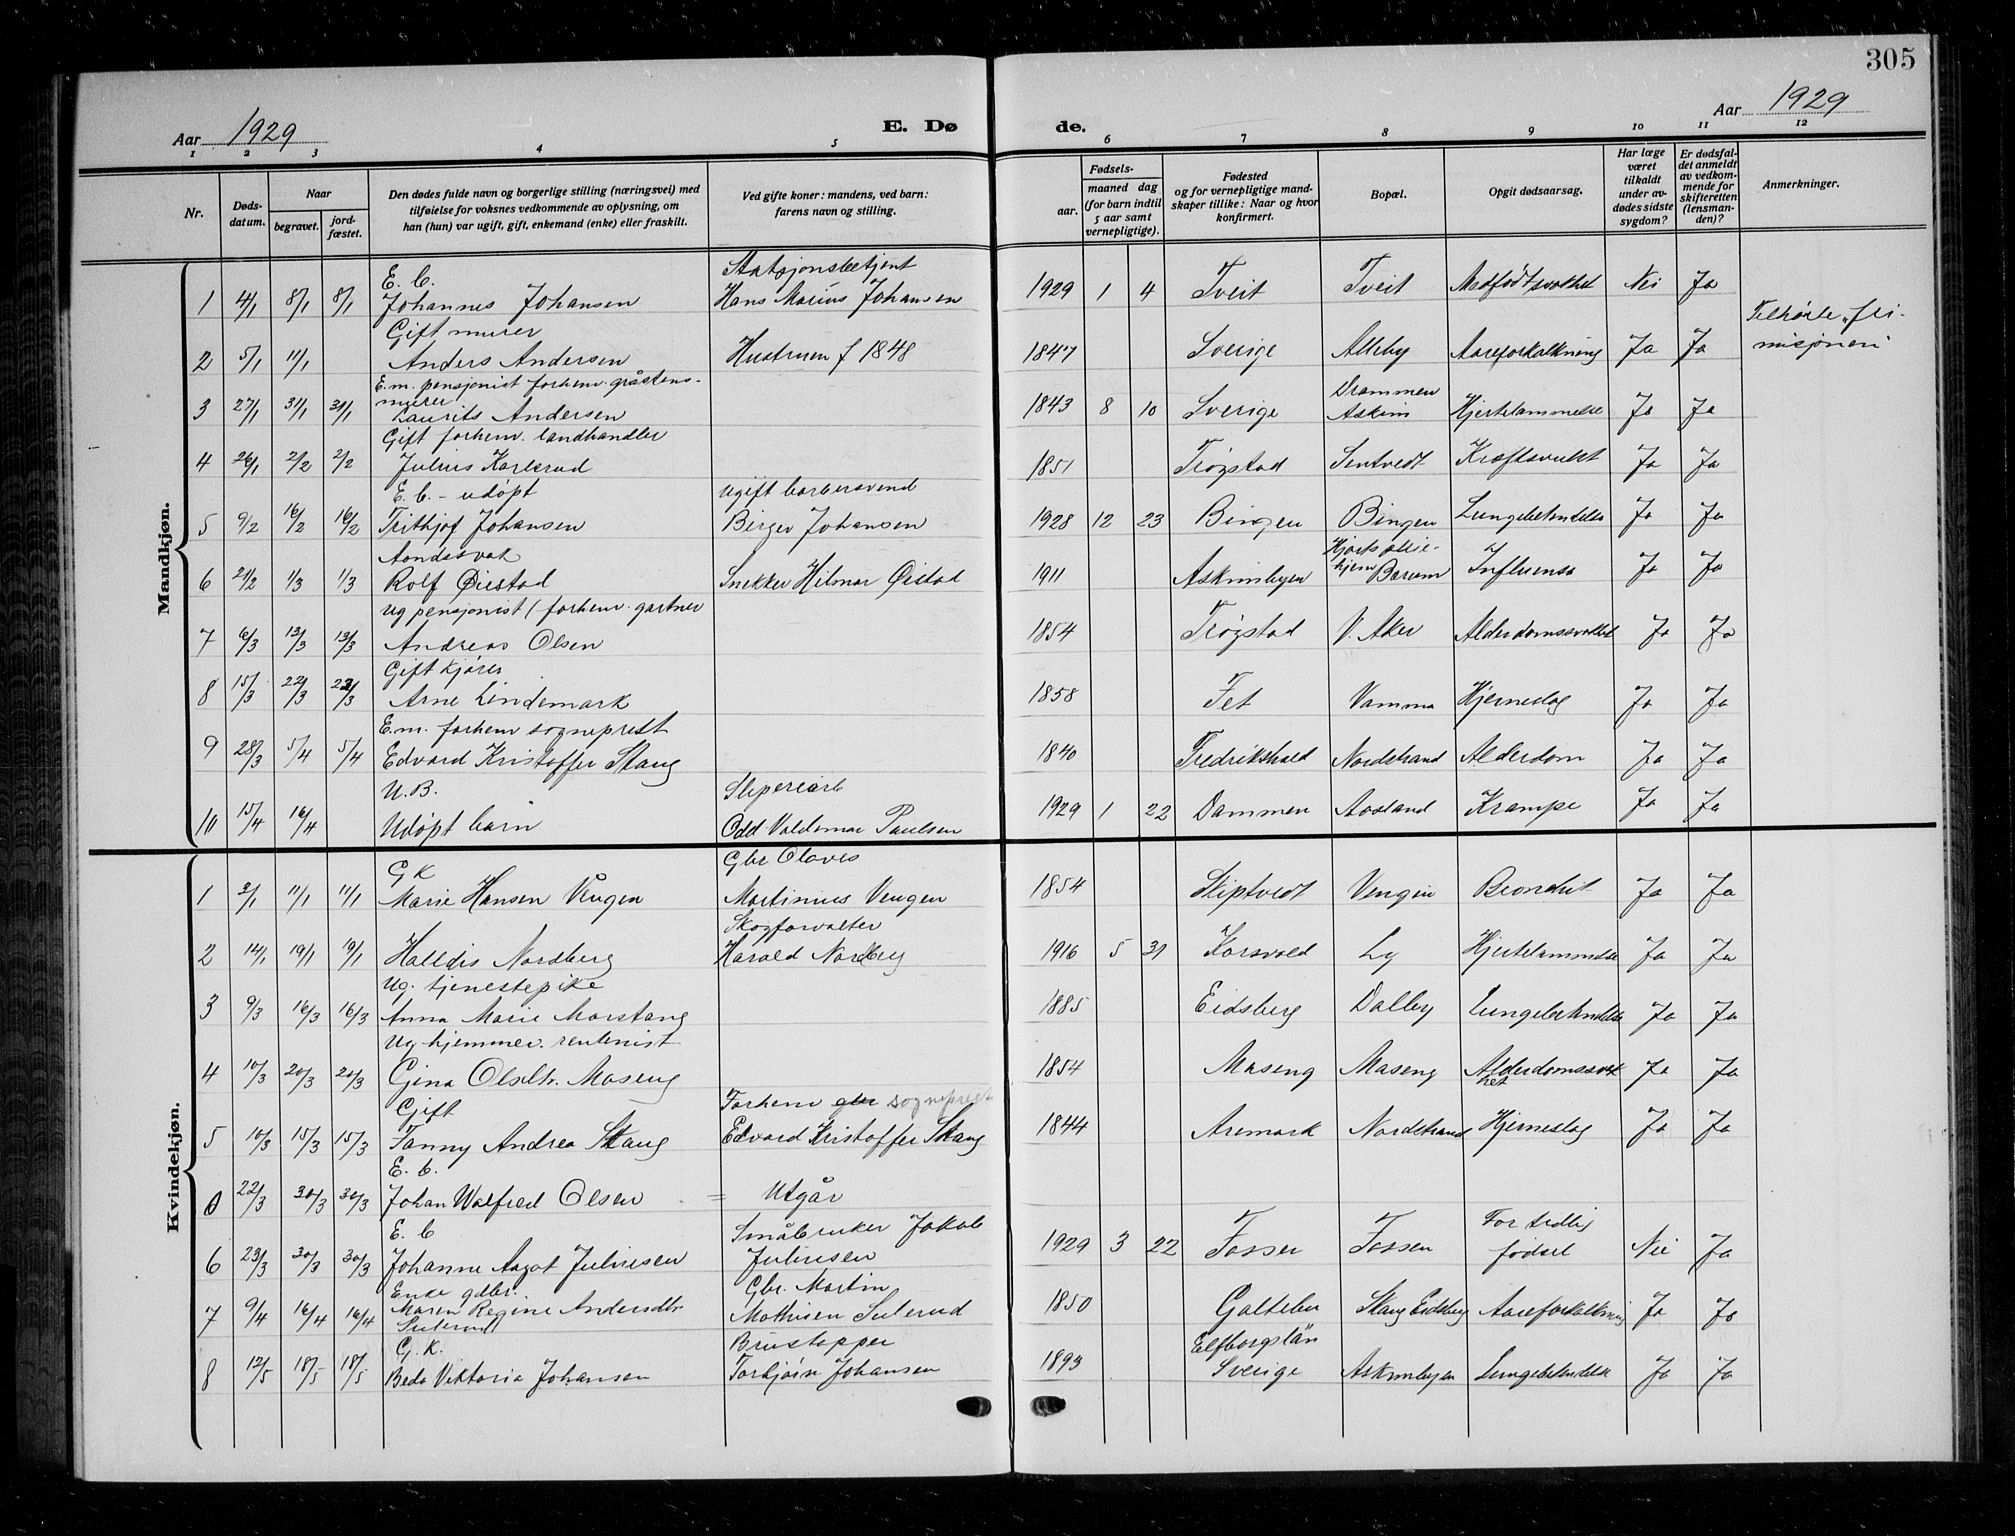 305
Aar 1929
E. Dø
de.
Aar 1929
1 2 3 4 5 6 7 8 9 10 11 12
Nr.
Døds-
datum.
Naar
begravet.
jord-
fæstet.
Den dødes fulde navn og borgerlige stilling (næringsvei) med
tilføielse for voksnes vedkommende av oplysning, om
han (hun) var ugift, gift, enkemand (enke) eller fraskilt.
Ved gifte koner: mandens, ved barn:
farens navn og stilling.
Fødsels-
aar.
maaned dag
(for barn indtil
5 aar samt
vernepligtige).
Fødested
og for vernepligtige mand-
skaper tillike: Naar og hvor
konfirmert.
Bopæl.
Opgit dødsaarsag.
Har læge
været
tilkaldt
under av-
dødes sidste
sygdom?
Er dødsfal-
det anmeldt
av vedkom-
mende for
skifteretten
(lensman-
den)?
Anmerkninger.
Mandkjøn.
E. b. Statsjonsbetjent
1 4/1 8/1 8/1 Johannes Johansen Hans Marius Johansen 1929 1 4 Tveit Tveit Medfødt svakhet Nei Ja
Gift murer
2 5/1 11/1 Anders Andersen Hustruen f 1848 1847 Sverige Alleby Aareforkalkning Ja Ja Tilhørte „fri-
misjonen"
E.m. pensjonist forhenv. gråstens-
murer
3 27/1 31/1 31/1 Laurits Andersen 1843 8 10 Sverige Drammen
Askim Hjertelammelse Ja Ja
Gift forhenv. landhandler
4 26/1 2/2 2/2 Julius Karlsrud 1851 Trøgstad Sentvedt Kræftsvulst Ja Ja
E. b. - udøpt ugift barbersvend
5 9/2 16/2 16/2 Frithjof Johansen Birger Johansen 1928 12 23 Bingen Bingen Lungebetendelse Ja Ja
Aandssvak
6 21/2 1/3 1/3 Rolf Øiestad Snekker Hilmar Øistad 1911 Askimbyen Hjorts pleie-
hjem Bærum Influensa Ja Ja
Ug pensjonist (forhenv. gartner
7 6/3 13/3 13/3 Andreas Olsen 1854 Trøgstad V. Aker Alderdomssvakhet Ja Ja
Gift kjører
8 15/3 22/3 22/3 Arne Lindemark 1858 Fet Vamma Hjerneslag Ja Ja
E.m. forhenv sogneprest
9 28/3 5/4 5/4 Edvard Kristoffer Skaug 1840 Fredrikshald Nordstrand Alderdom Ja Ja
U.B. Sliperiarb
10 15/4 16/4 Udøpt barn Odd Valdemar Paulsen 1929 1 22 Dammen Aasland Krampe Ja Ja
Kvindekjøn.
G K Gbr Olaves
1 3/1 11/1 11/1 Marie Hansen Vengen Martinius Vengen 1854 Skiptvedt Vengen Bronchit Ja Ja
Skogforvalter
2 14/1 19/1 19/1 Halldis Nordberg Harald Nordberg 1916 5 31 Korsvold Ly Hjertelammelse Ja Ja
Ug. tjenestepike
3 9/3 16/3 16/3 Anna Marie Morstang 1885 Eidsberg Dalby Lungebetendelse Ja Ja
Ug hjemmev. rentenist
4 10/3 20/3 20/3 Gina Olsdtr. Maseng 1854 Maseng Maseng Alderdomssvak
het Ja Ja
Gift Forhenv gbr sogneprest
5 10/3 15/3 15/3 Fanny Andrea Skaug Edvard Kristoffer Skaug 1844 Aremark Nordstrand Hjerneslag Ja Ja
E. b.
0 22/3 30/3 30/3 Johan Walfred Olsen = Utgår
E. b Småbruker Jakob
6 23/3 30/3 30/3 Johanne Aagot Juliussen Juliussen 1929 3 22 Fossen Fossen For tidlig
fødsel Nei Ja
Enke gdbr. Gbr. Martin
7 9/4 16/4 16/4 Maren Regine Andersdtr Mathisen Sulerud 1850 Galteby Skaug Eidsberg Aareforkalkning Ja Ja
Sulerud
G. K. Brustopper Elfborgslän
8 12/5 18/5 18/5 Beda Viktoria Johansen Torbjørn Johansen 1893 Sverige Askimbyen Lungebetendelse Ja Ja